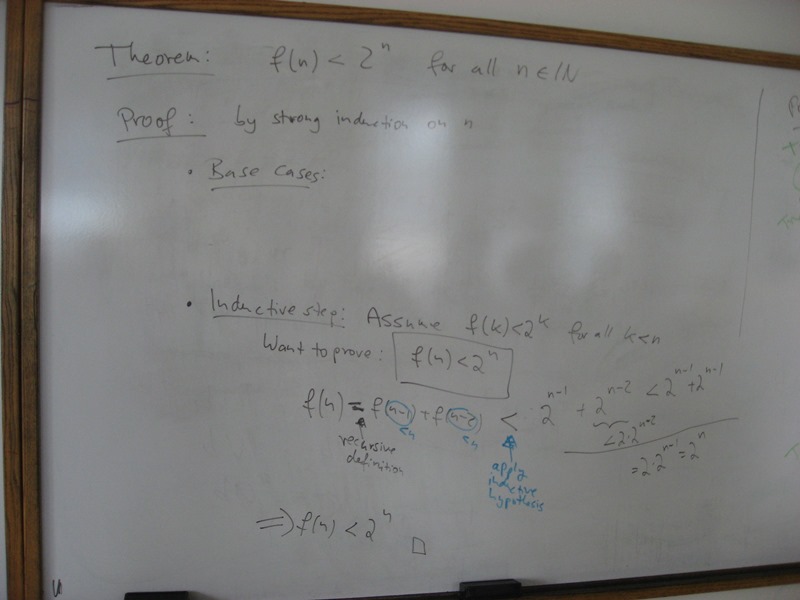 Theorem: f(n) < 2^n for all n ∈ IN
Proof: by strong induction on n
• Base cases:
• Inductive step: Assume f(k) < 2^k for all k < n
Want to prove: f(n) < 2^n
f(n) = f(n-1) + f(n-2) < 2^{n-1} + 2^{n-2} < 2^{n-1} + 2^{n-1}
<n <n
< 2·2^{n-2}
= 2·2^{n-1} = 2^n
recursive
definition
apply
inductive
hypothesis
⟹ f(n) < 2^n □